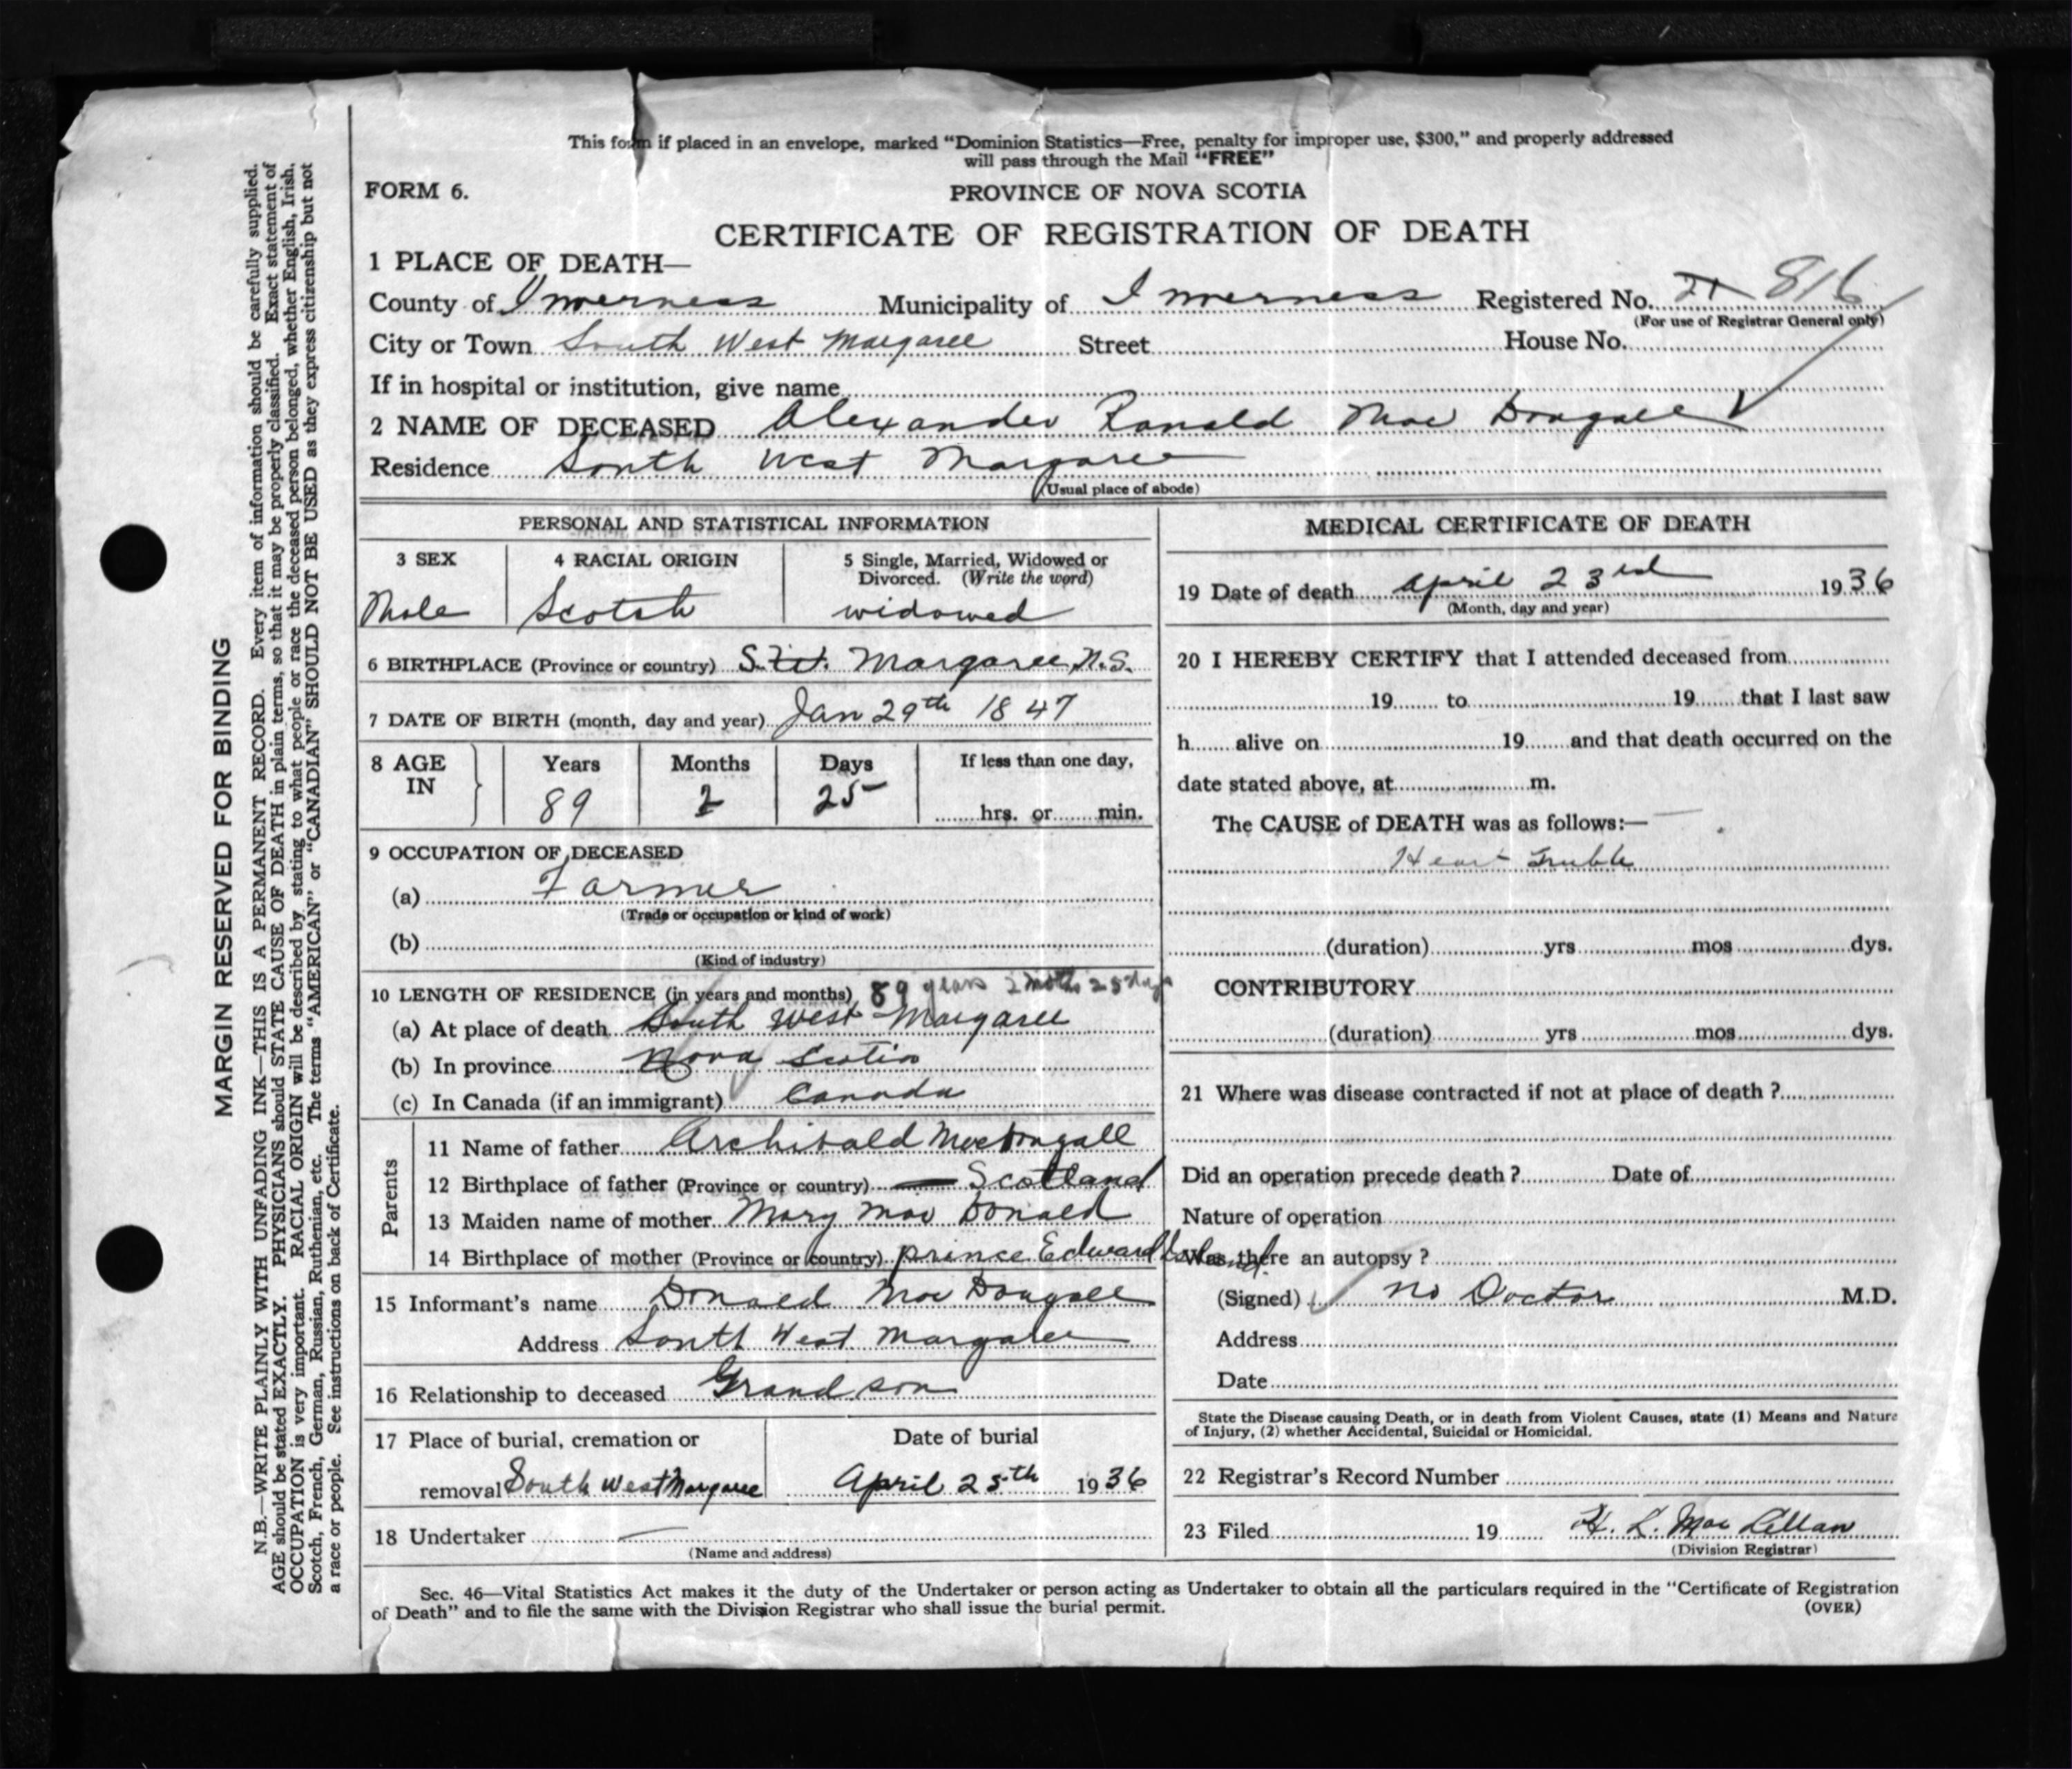 This form if placed in an envelope, marked "Dominion Statistics—Free, penalty for improper use, $300," and properly addressed
will pass through the Mail "FREE"
FORM 6.
PROVINCE OF NOVA SCOTIA
CERTIFICATE OF REGISTRATION OF DEATH
1 PLACE OF DEATH—
County of Inverness Municipality of Inverness Registered No. 21 816
(For use of Registrar General only)
City or Town South West Margaree Street House No.
If in hospital or institution, give name
2 NAME OF DECEASED Alexander Ronald Mac Dougall
Residence South West Margaree
(Usual place of abode)
PERSONAL AND STATISTICAL INFORMATION
3 SEX 4 RACIAL ORIGIN 5 Single, Married, Widowed or
Divorced. (Write the word)
Male Scotch widowed
6 BIRTHPLACE (Province or country) S.W. Margaree N.S.
7 DATE OF BIRTH (month, day and year) Jan 29th 1847
8 AGE IN Years Months Days If less than one day,
89 2 25 hrs. or min.
9 OCCUPATION OF DECEASED
(a) Farmer
(Trade or occupation or kind of work)
(b)
(Kind of industry)
10 LENGTH OF RESIDENCE (in years and months) 89 years 2 moths 25 days
(a) At place of death South West Margaree
(b) In province Nova Scotia
(c) In Canada (if an immigrant) Canada
Parents
11 Name of father Archibald MacDougall
12 Birthplace of father (Province or country) Scotland
13 Maiden name of mother Mary Mac Donald
14 Birthplace of mother (Province or country) prince Edward Island
15 Informant's name Donald Mac Dougall
Address South West Margaree
16 Relationship to deceased Grand son
17 Place of burial, cremation or Date of burial
removal South West Margaree April 25th 1936
18 Undertaker
(Name and address)
MEDICAL CERTIFICATE OF DEATH
19 Date of death April 23rd 1936
(Month, day and year)
20 I HEREBY CERTIFY that I attended deceased from
19 to 19 that I last saw
h alive on 19 and that death occurred on the
date stated above, at m.
The CAUSE of DEATH was as follows:—
Heart Truble
(duration) yrs mos dys.
CONTRIBUTORY
(duration) yrs mos dys.
21 Where was disease contracted if not at place of death ?
Did an operation precede death ? Date of
Nature of operation
Was there an autopsy ?
(Signed) No Doctor M.D.
Address
Date
State the Disease causing Death, or in death from Violent Causes, state (1) Means and Nature
of Injury, (2) whether Accidental, Suicidal or Homicidal.
22 Registrar's Record Number
23 Filed 19 H. L. Mac Lellan
(Division Registrar)
Sec. 46—Vital Statistics Act makes it the duty of the Undertaker or person acting as Undertaker to obtain all the particulars required in the "Certificate of Registration
of Death" and to file the same with the Division Registrar who shall issue the burial permit.
(OVER)
MARGIN RESERVED FOR BINDING
N.B.—WRITE PLAINLY WITH UNFADING INK—THIS IS A PERMANENT RECORD. Every item of information should be carefully supplied.
AGE should be stated EXACTLY. PHYSICIANS should STATE CAUSE OF DEATH in plain terms, so that it may be properly classified. Exact statement of
OCCUPATION is very important. RACIAL ORIGIN will be described by stating to what people or race the deceased person belonged, whether English, Irish,
Scotch, French, German, Russian, Ruthenian, etc. The terms "AMERICAN" or "CANADIAN" SHOULD NOT BE USED as they express citizenship but not
a race or people. See instructions on back of Certificate.